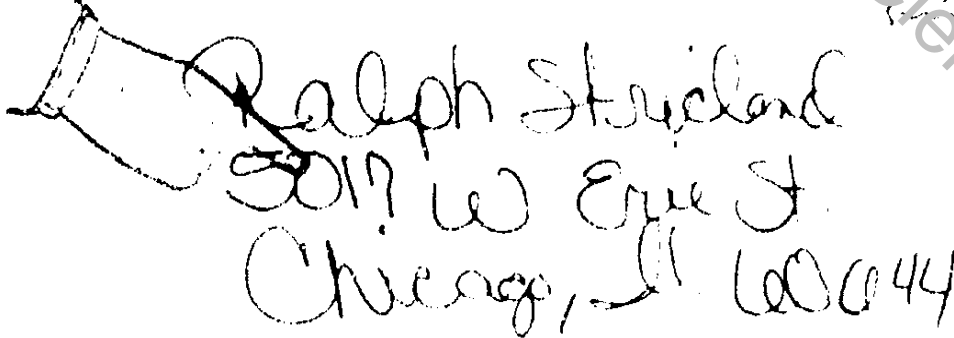 Ralph Stricland
5017 W Erie St.
Chicago, Il 60644